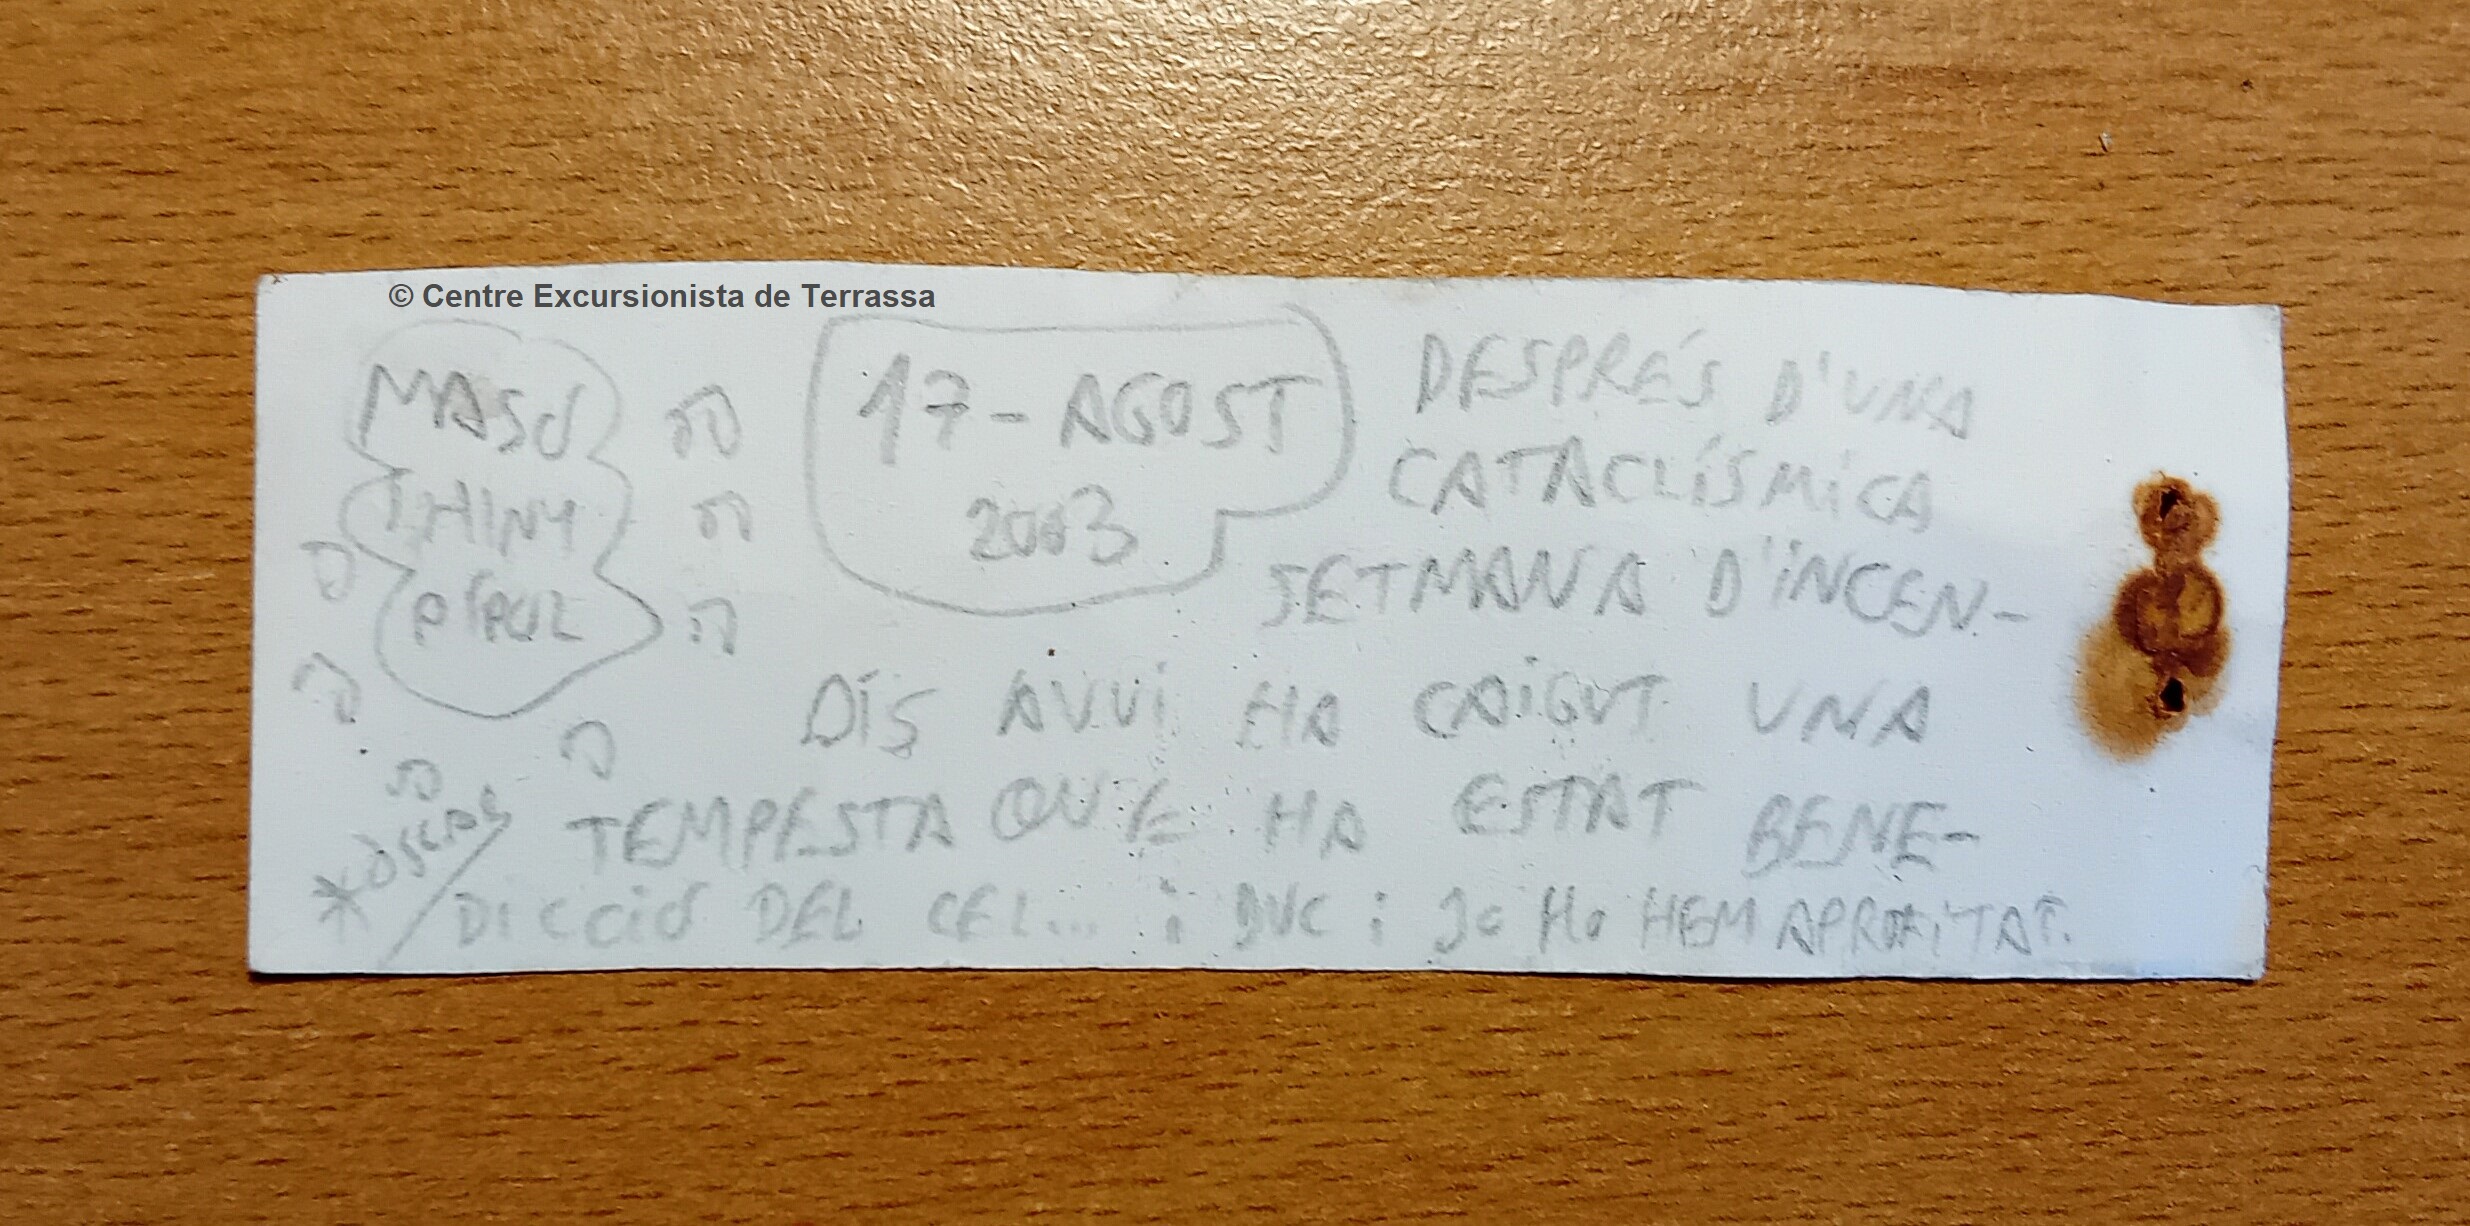 © Centre Excursionista de Terrassa
MASO
THINY
17-AGOST
2003
DESPRÉS D'UNA
CATACLÍSMICA
SETMANA D'INCEN-
DIS AVUI HA CAIGUT UNA
TEMPESTA QUE HA ESTAT BENE-
DICCIÓ DEL CEL... i DUC i JO HO HEM APROFITAT.
*ÒSCAR